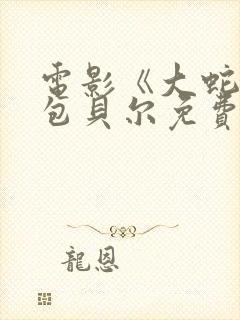 電影《大蛇
包貝尔免費
龍恩